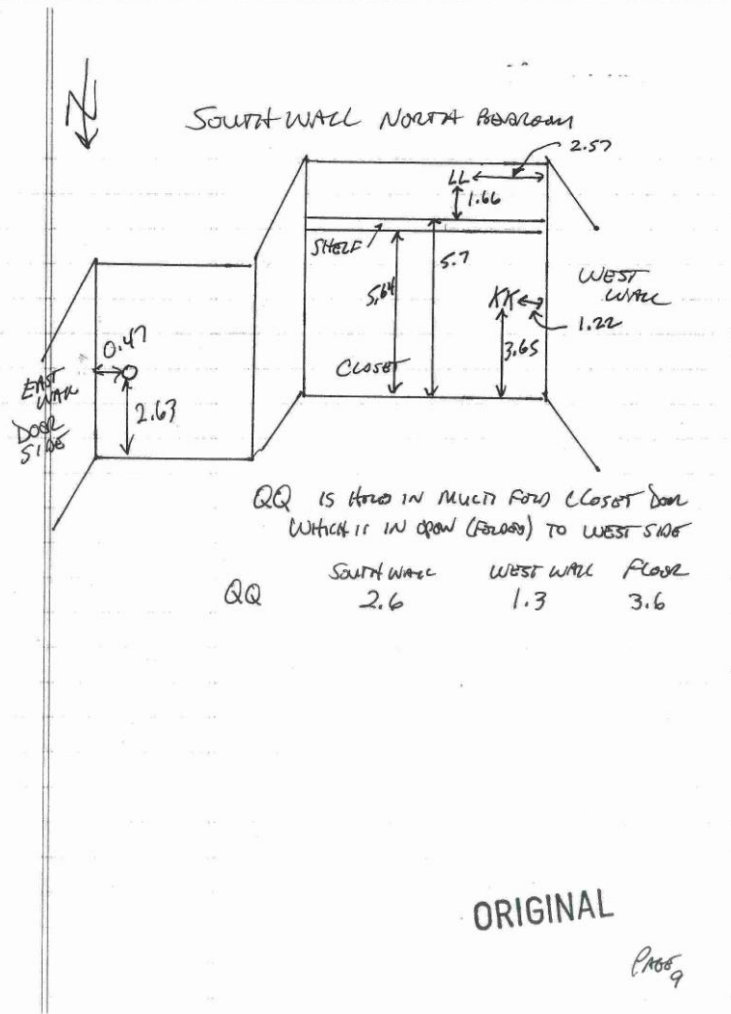 N
SOUTH WALL NORTH BEDROOM
2.57
LL
1.66
SHELF
5.64
5.7
WEST
WALL
KK
1.22
3.65
CLOSET
0.47
EAST
WALL
DOOR
SIDE
2.63
QQ IS HOLD IN MULTI FOLD CLOSET DOOR
WHICH IS IN OPEN (FOLDED) TO WEST SIDE
SOUTH WALL WEST WALL FLOOR
QQ 2.6 1.3 3.6
ORIGINAL
PAGE
9